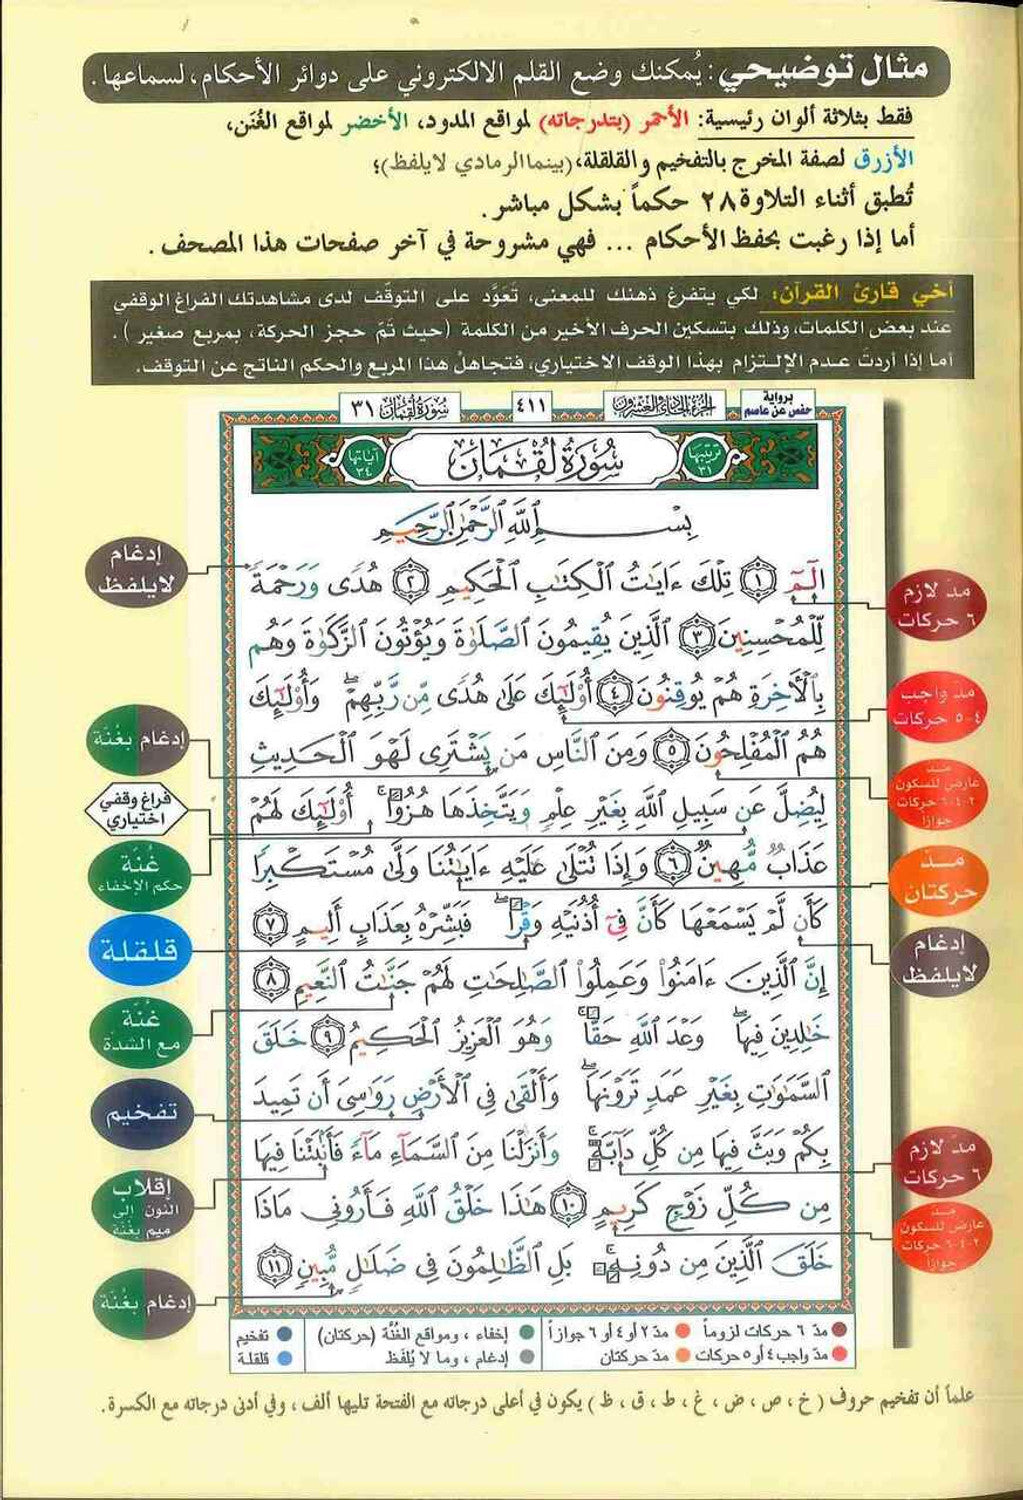 مثال توضيحي: يُمكنك وضع القلم الالكتروني على دوائر الأحكام، لسماعها.
فقط بثلاثة ألوان رئيسية: الأحمر (بتدرجاته) لمواقع المدود، الأخضر لمواقع الغُنَن،
الأزرق لصفة المخرج بالتفخيم والقلقلة، (بينما الرمادي لايلفظ)؛
تُطبق أثناء التلاوة ٢٨ حكماً بشكل مباشر.
أما إذا رغبت بحفظ الأحكام ... فهي مشروحة في آخر صفحات هذا المصحف.
أخي قارئ القرآن: لكي يتفرغ ذهنك للمعنى، تَعَوَّد على التوقّف لدى مشاهدتك الفراغ الوقفي
عند بعض الكلمات، وذلك بتسكين الحرف الأخير من الكلمة (حيث تمَّ حجز الحركة، بمربع صغير).
أما إذا أردتَ عدم الإلتزام بهذا الوقف الاختياري، فتجاهلْ هذا المربع والحكم الناتج عن التوقف.
برواية حفص عن عاصم
الجزء الحادي والعشرون
٤١١
سورة لقمان ٣١
ترتيبها ٣١
سُورَةُ لُقْمَانَ
آياتها ٣٤
بِسْمِ ٱللَّهِ ٱلرَّحْمَٰنِ ٱلرَّحِيمِ
الٓمٓ ١ تِلْكَ ءَايَٰتُ ٱلْكِتَٰبِ ٱلْحَكِيمِ ٢ هُدًى وَرَحْمَةً
لِّلْمُحْسِنِينَ ٣ ٱلَّذِينَ يُقِيمُونَ ٱلصَّلَوٰةَ وَيُؤْتُونَ ٱلزَّكَوٰةَ وَهُم
بِٱلْأَخِرَةِ هُمْ يُوقِنُونَ ٤ أُوْلَٰٓئِكَ عَلَىٰ هُدًى مِّن رَّبِّهِمْۖ وَأُوْلَٰٓئِكَ
هُمُ ٱلْمُفْلِحُونَ ٥ وَمِنَ ٱلنَّاسِ مَن يَشْتَرِى لَهْوَ ٱلْحَدِيثِ
لِيُضِلَّ عَن سَبِيلِ ٱللَّهِ بِغَيْرِ عِلْمٍ وَيَتَّخِذَهَا هُزُوًاۚ أُوْلَٰٓئِكَ لَهُمْ
عَذَابٌ مُّهِينٌ ٦ وَإِذَا تُتْلَىٰ عَلَيْهِ ءَايَٰتُنَا وَلَّىٰ مُسْتَكْبِرًا
كَأَن لَّمْ يَسْمَعْهَا كَأَنَّ فِىٓ أُذُنَيْهِ وَقْرًاۖ فَبَشِّرْهُ بِعَذَابٍ أَلِيمٍ ٧
إِنَّ ٱلَّذِينَ ءَامَنُوا۟ وَعَمِلُوا۟ ٱلصَّٰلِحَٰتِ لَهُمْ جَنَّٰتُ ٱلنَّعِيمِ ٨
خَٰلِدِينَ فِيهَاۖ وَعْدَ ٱللَّهِ حَقًّاۚ وَهُوَ ٱلْعَزِيزُ ٱلْحَكِيمُ ٩ خَلَقَ
ٱلسَّمَٰوَٰتِ بِغَيْرِ عَمَدٍ تَرَوْنَهَاۖ وَأَلْقَىٰ فِى ٱلْأَرْضِ رَوَٰسِىَ أَن تَمِيدَ
بِكُمْ وَبَثَّ فِيهَا مِن كُلِّ دَآبَّةٍۚ وَأَنزَلْنَا مِنَ ٱلسَّمَآءِ مَآءً فَأَنۢبَتْنَا فِيهَا
مِن كُلِّ زَوْجٍ كَرِيمٍ ١٠ هَٰذَا خَلْقُ ٱللَّهِ فَأَرُونِى مَاذَا
خَلَقَ ٱلَّذِينَ مِن دُونِهِۦۚ بَلِ ٱلظَّٰلِمُونَ فِى ضَلَٰلٍ مُّبِينٍ ١١
مدّ لازم
٦ حركات
مدّ واجب
٤-٥ حركات
مدّ
عارض للسكون
٢-٤-٦ حركات
جوازاً
مدّ
حركتان
إدغام
لايلفظ
مدّ لازم
٦ حركات
مدّ
عارض للسكون
٢-٤-٦ حركات
جوازاً
إدغام
لايلفظ
إدغام بغُنّة
فراغ وقفي
اختياري
غُنّة
حكم الإخفاء
قلقلة
غُنّة
مع الشدّة
تفخيم
إقلاب
النون إلى
ميم بغُنّة
إدغام بغُنّة
مدّ ٦ حركات لزوماً
مدّ ٢ أو ٤ أو ٦ جوازاً
إخفاء، ومواقع الغُنَّة (حركتان)
تفخيم
مدّ واجب ٤ أو ٥ حركات
مدّ حركتان
إدغام، وما لا يُلفَظ
قلقلة
علماً أن تفخيم حروف (خ، ص، ض، غ، ط، ق، ظ) يكون في أعلى درجاته مع الفتحة تليها ألف، وفي أدنى درجاته مع الكسرة.